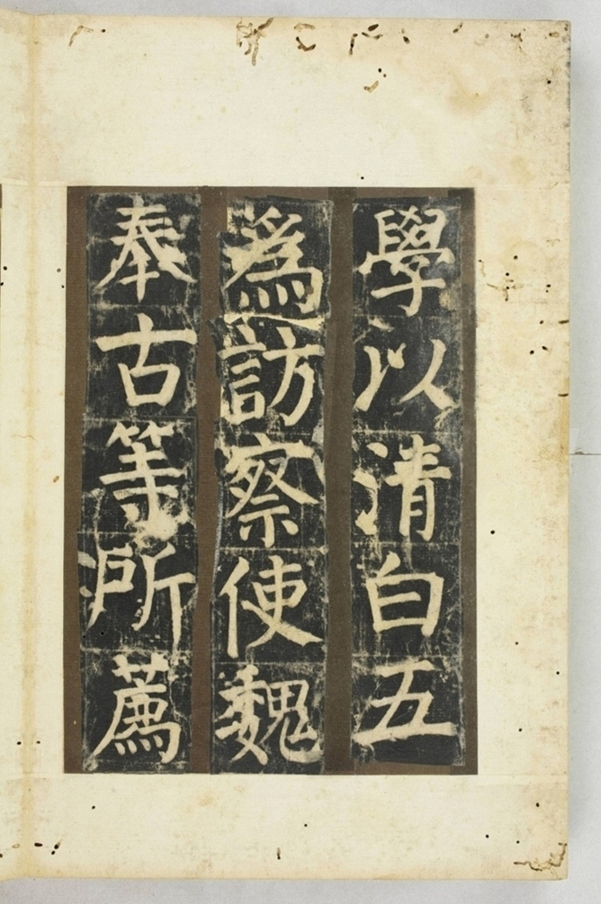 學以清白五
爲訪察使魏
奉古等所薦